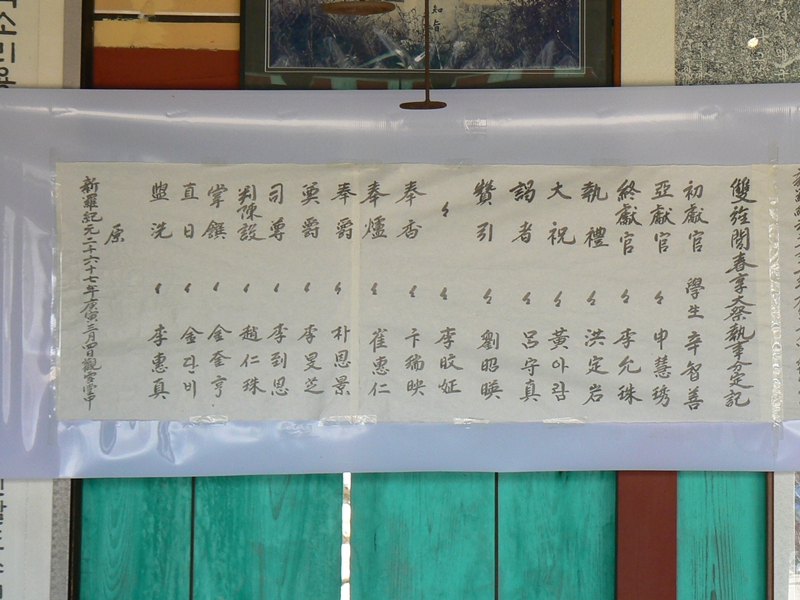 雙旌閣春享大祭執事分定記
初獻官 學生 辛智善
亞獻官 〻 申慧琇
終獻官 〻 李允珠
執禮 〻 洪定岩
大祝 〻 黃아람
謁者 〻 呂守真
贊引 〻 劉昭暎
〻 〻 李旼姃
奉香 〻 卞瑞映
奉爐 〻 崔惠仁
奉爵 〻 朴恩景
奠爵 〻 李旻芝
司尊 〻 李到恩
判陳設 〻 趙仁珠
掌饌 〻 金奎亨
直日 〻 金단비
盥洗 〻 李惠真
原
新羅紀元二千六十七年庚寅三月四日觀雪堂中